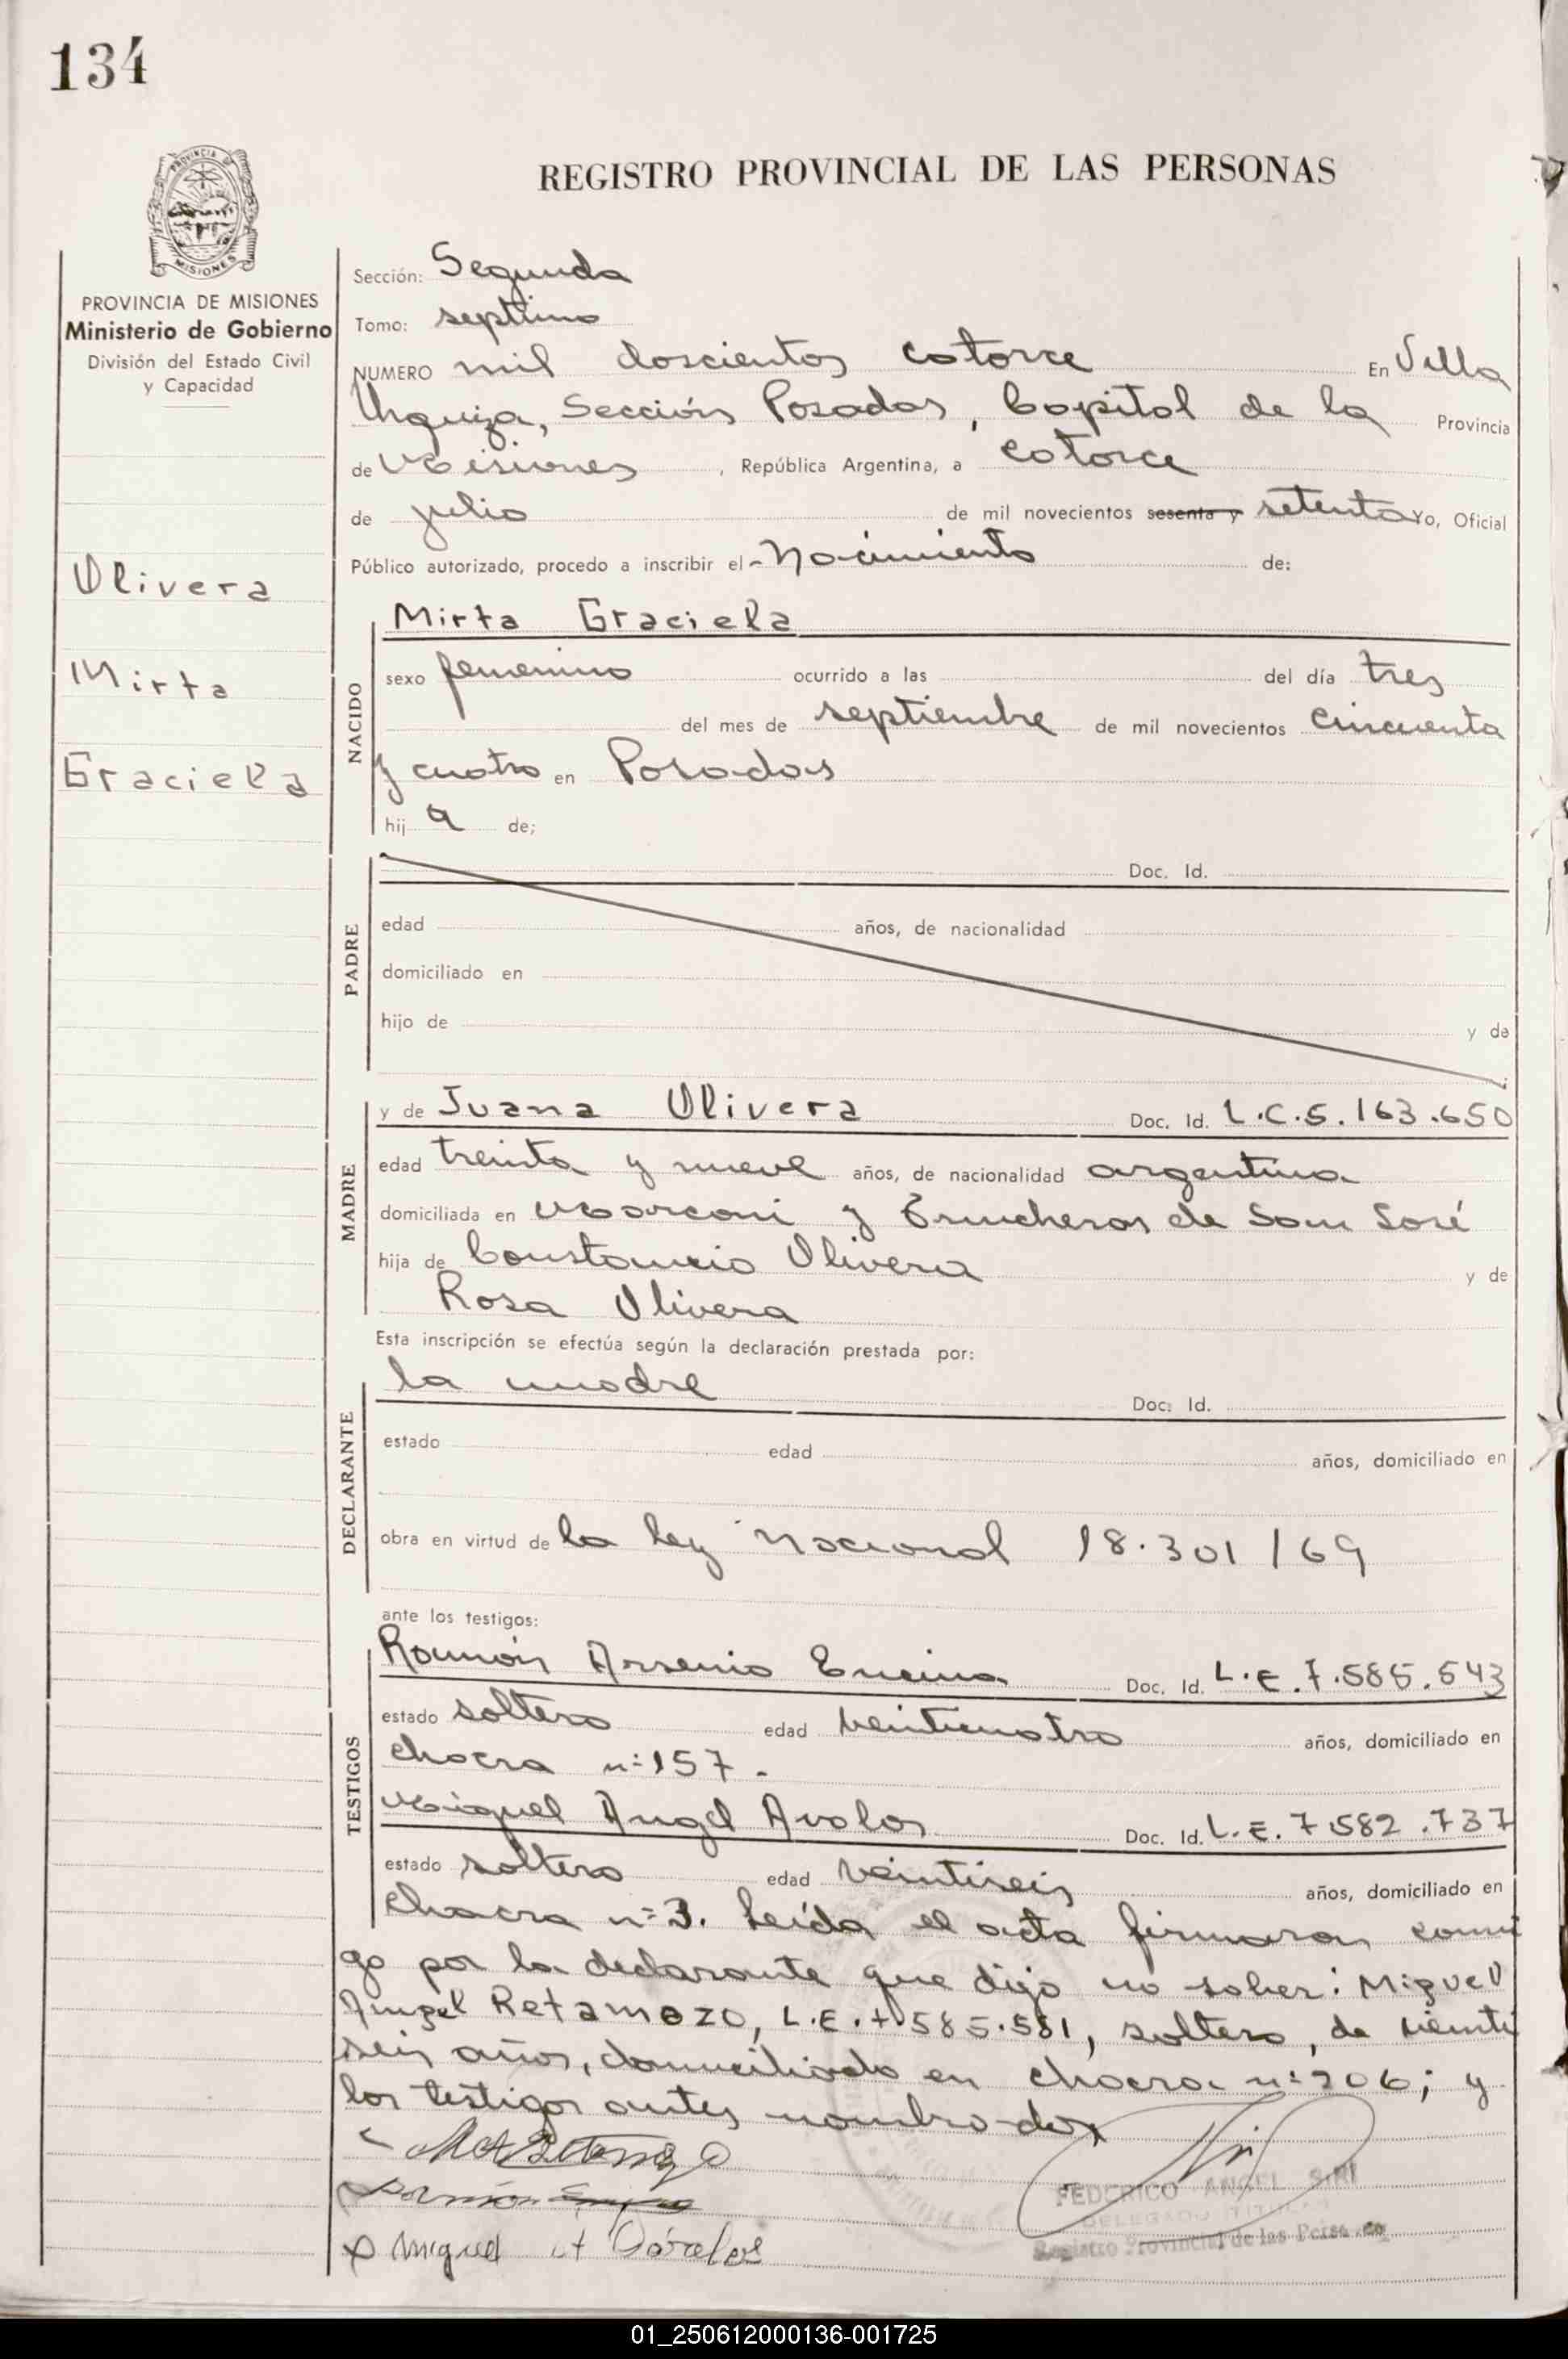 134
REGISTRO PROVINCIAL DE LAS PERSONAS
PROVINCIA DE MISIONES
PROVINCIA DE MISIONES
Ministerio de Gobierno
División del Estado Civil
y Capacidad
Olivera
Mirta
Graciela
Sección: Segunda
Tomo: septimo
NUMERO mil doscientos catorce En Villa
Urquiza, Sección Posadas, Capital de la Provincia
de Misiones, República Argentina, a catorce
de julio de mil novecientos sesenta y setenta Yo, Oficial
Público autorizado, procedo a inscribir el Nacimiento de:
NACIDO
Mirta Graciela
sexo femenino ocurrido a las del día tres
del mes de septiembre de mil novecientos cincuenta
y cuatro en Posadas
hij a de;
PADRE
Doc. Id.
edad años, de nacionalidad
domiciliado en
hijo de y de
MADRE
y de Juana Olivera Doc. Id. L.C.5.163.650
edad treinta y nueve años, de nacionalidad argentina
domiciliada en Marconi y Trincheras de San José
hija de Constancio Olivera y de
Rosa Olivera
Esta inscripción se efectúa según la declaración prestada por:
DECLARANTE
la madre Doc. Id.
estado edad años, domiciliado en
obra en virtud de la ley nacional 18.301/69
ante los testigos:
TESTIGOS
Ramón Arsenio Encina Doc. Id. L.E.7.585.543
estado soltero edad veinticuatro años, domiciliado en
chacra nº157.
Miguel Angel Avalos Doc. Id. L.E.7.582.737
estado soltero edad veintiseis años, domiciliado en
chacra nº3. Leída el acta firmaron conmi
go por la declarante que dijo no saber: Miguel
Angel Retamozo, L.E.7.585.581, soltero, de veinti
seis años, domiciliado en chacra nº206; y
los testigos antes nombrados
Miguel A
FEDERICO ANGEL SIRI
DELEGADO TITULAR
Registro Provincial de las Personas
01_250612000136-001725